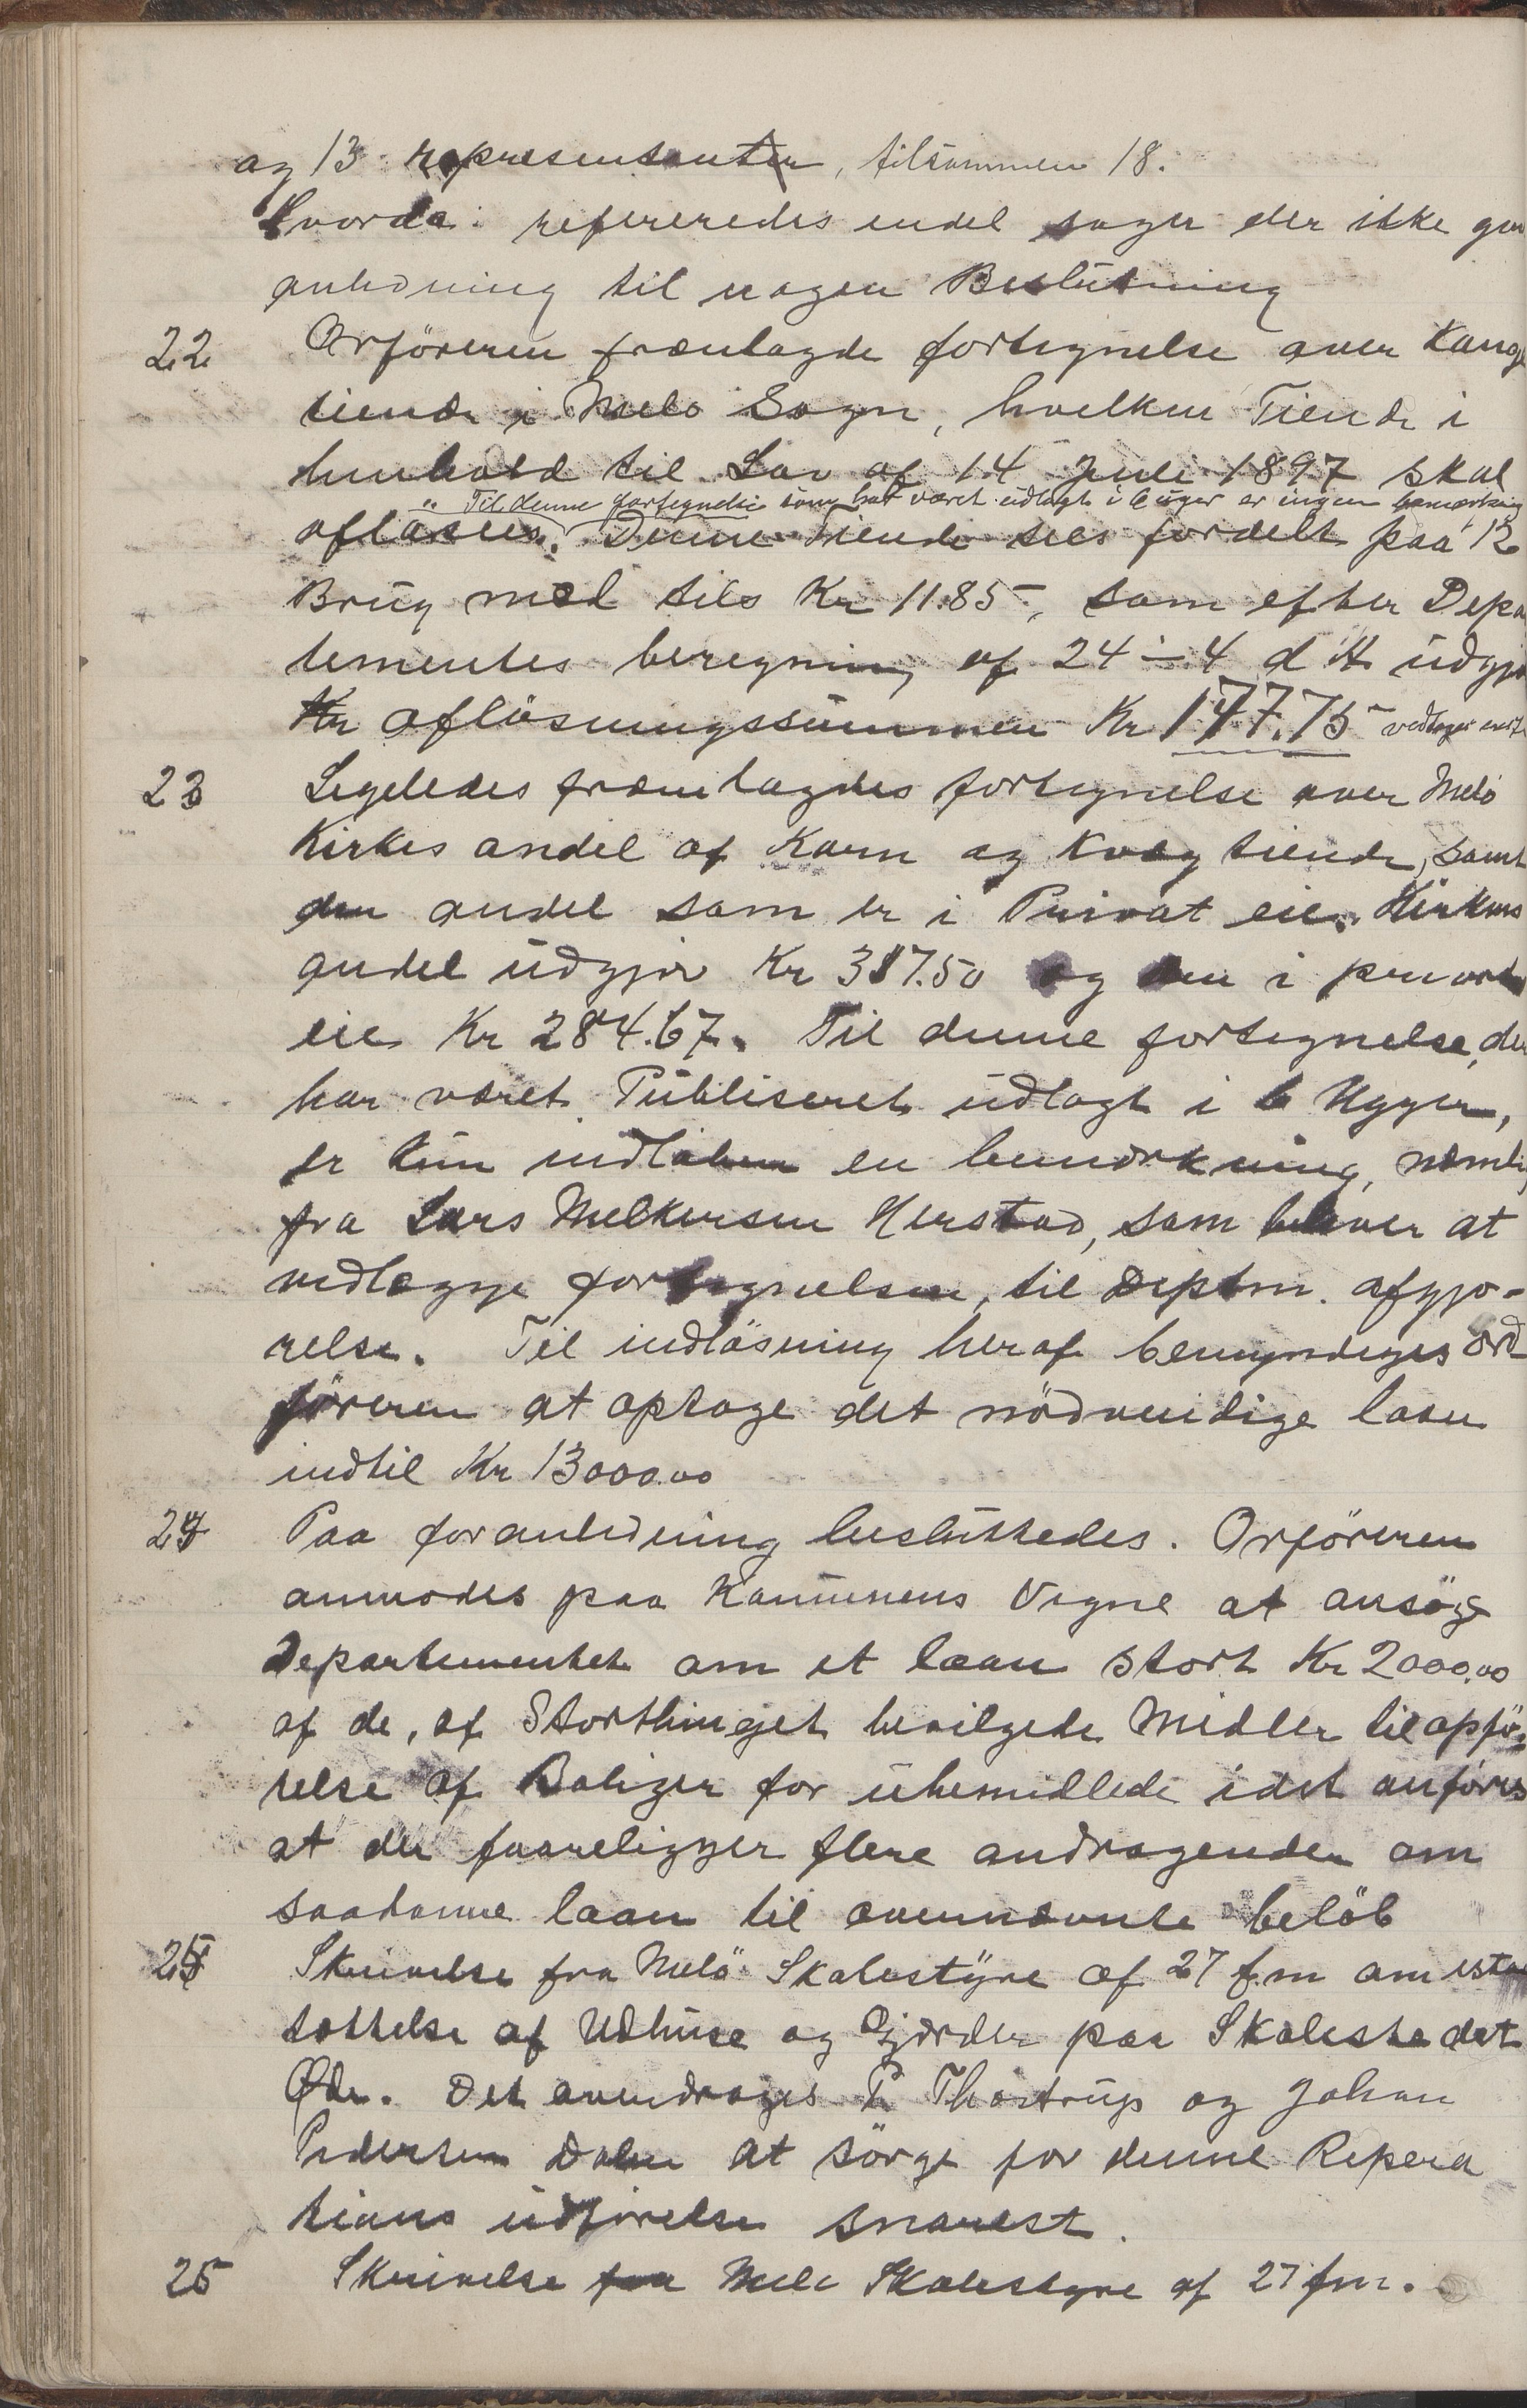 og 13 repræsentanter, tilsammen 18.
Hvorda. refereredes endel sager der ikke gav
anledning til nogen Beslutning
22 Orföreren fremlagde fortegnelse over Konge
tiende i Melö Sogn, hvilken Tiende i
henhold til Lov af 14 Juli 1897 skal
" Til denne fortegnelse som har været udlagt i 6 uger er ingen bemærkning
aflöses. Denne tiende sees fordelt paa 12
Brug med tils Kr 11.85, som efter Depar
tementets beregning af 24-4 d A udgjör
Kr aflösningssummen Kr 177.75
23 Ligeledes fremlagdes fortegnelse over Melö
Kirkes andel af Korn og Kvæg tiende, samt
den andel som er i Privat eie. Kirkens
andel udgjör Kr 387.50 og den i privat
eie Kr 284.67. Til denne fortegnelse, der
har været Publiseret udlagt i 6 Ugger,
er kun indlöben en bemærkning, nemlig
fra Lars Melkersen Herstad, som bliver at
vedlægge fortegnelsen, til Deptm. afgjö-
relse. Til indlösning heraf bemyndiges ord
föreren at optage det nödvendige laan
indtil Kr 13000.00
24 Paa foranledning besluttedes. Orföreren
anmodes paa Komunens Vegne at ansöge
Departementet om et laan stort Kr 2000.00
af de, af Storthinget bevilgede Midler til opfö-
relse af Boliger for ubemidlede idet anföres
at der foareligger flere andragender om
saadanne laan til ovennævnte belöb
25 Skrivelse fra Melö Skolestyre af 27 f.m om istand
settelse af Udhuse og Gjerder paa Skolestedet
Øde. Det overdrages P. Thostrup og Johan
Pedersen Dalen at sörge for denne Repera
tions udförelse snarest.
25 Skrivelse fra Melö Skolestyre af 27 fm.